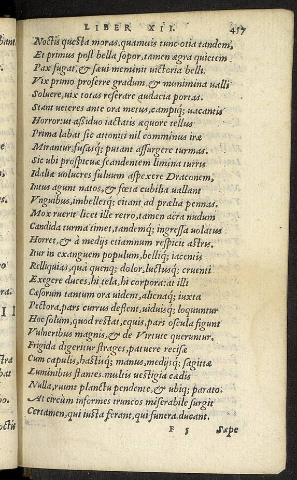 LIBER XII. 457
Noctis questa moras, quamuis tunc otia tandem,
Et primus post bella sopor, tamen ægra quietem
Pax fugat, & sæui meminit uictoria belli.
Vix primo proferre gradum, & munimina ualli
Soluere, uix totas reserare audacia portas.
Stant ueteres ante ora metus, campiq; uacantis
Horror: ut assiduo iactatis æquore tellus
Prima labat sic attoniti nil comminus iræ
Mirantur, fusasq; putant assurgere turmas.
Sic ubi prospicuæ scandentem limina turris
Idaliæ uolucres fuluum aspexere Draconem,
Intus agunt natos, & fœta cubilia uallant
Vnguibus, imbellesq; citant ad prælia pennas.
Mox ruerit licet ille retro, tamen aëra nudum
Candida turma timet, tandemq; ingressa uolatus
Horret, & à medijs etiamnum respicit astris.
Itur in exanguem populum, bellíq; iacentis
Relliquias, quà quenq; dolor, luctusq; cruenti
Exegere duces, hi tela, hi corpora: at illi
Cæsorum tantum ora uident, alienaq; iuxta
Pectora, pars currus deflent, uiduisq; loquuntur
Hoc solum, quod restat, equis, pars oscula figunt
Vulneribus magnis, & de Virtute queruntur.
Frigida digeritur strages, patuere recisæ
Cum capulis, hastisq; manus, medijsq; sagittæ
Luminibus stantes. multis uestigia cædis
Nulla, ruunt planctu pendente, & ubiq; parato.
At circùm informes truncos miserabile surgit
Certamen, qui iusta ferant, qui funera ducant.
F 5 Sæpe